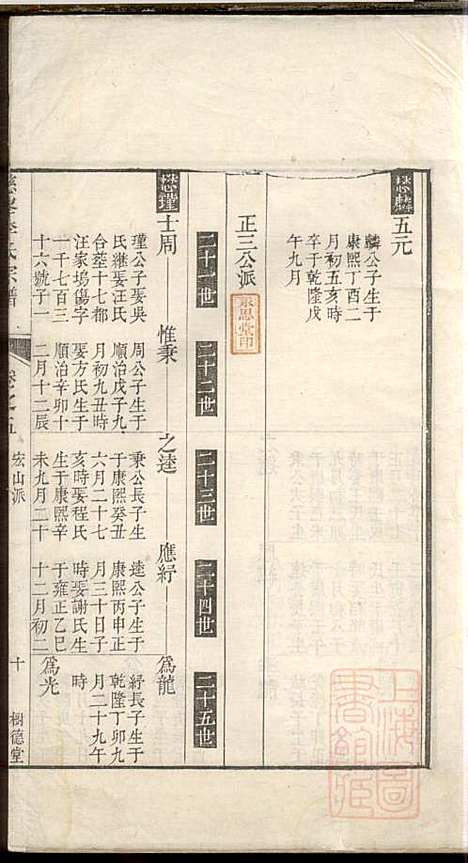 懋麟
五元
麟公子生于
康熙丁酉二
月初五亥時
卒于乾隆戊
午九月
正三公派
敦思堂印
二十一世
二十二世
二十三世
二十四世
二十五世
懋瑾
士周
瑾公子娶吳
氏繼娶汪氏
合葬十七都
汪家塢傷字
一千七百三
十六號子一
惟秉
周公子生于
順治戊子九
月初九丑時
娶方氏生于
順治辛卯十
二月十二辰
之逵
秉公長子生
于康熙癸丑
六月二十七
亥時娶程氏
生于康熙辛
未九月二十
應紓
逵公子生于
康熙丙申正
月三十日子
時娶謝氏生
于雍正乙巳
十二月初二
為龍
紓長子生于
乾隆丁卯九
月二十九午
時
為光
卷之五
宏山派
十
樹德堂
上海圖
書館藏